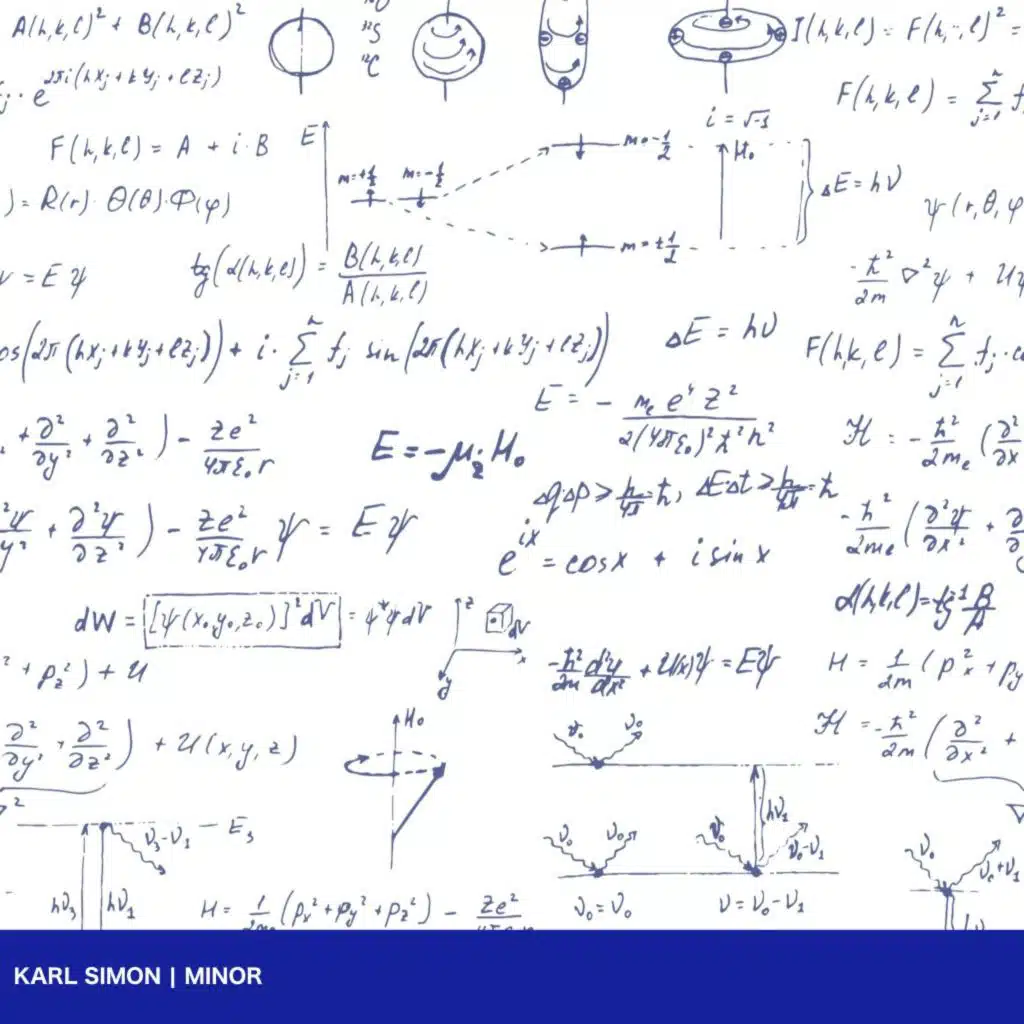 A(h,k,l)² + B(h,k,l)²
I(h,k,l) = F(h,-,l)² =
e^2πi(hx_j + ky_j + lz_j)
F(h,k,l) = Σ_j=1^n f
F(h,k,l) = A + i·B
E
i = √-1
m=+½ m=-½
m=-½
H₀
ΔE = hν
) = R(r)·Θ(θ)·Φ(φ)
ψ(r,θ,φ
m=±½
= Eψ
tg(α(h,k,l)) = B(h,k,l)/A(h,k,l)
-ħ²/2m ∇²ψ + Uψ
os(2π(hx_j+ky_j+lz_j)) + i·Σ_j=1^n f_j sin(2π(hx_j+ky_j+lz_j))
ΔE = hν
F(h,k,l) = Σ_j=1^n f_j·co
E = - m_e e⁴ z²/2(4πε₀)²ħ²n²
+ ∂²/∂y² + ∂²/∂z² ) - ze²/4πε₀r
E = -μ_z H₀
ℋ = -ħ²/2m_e (∂²/∂x
ΔqΔp > h/4π = ħ, ΔEΔt > h/4π = ħ
²ψ/y² + ∂²ψ/∂z² ) - ze²/4πε₀r ψ = Eψ
-ħ²/2m_e (∂²ψ/∂x² + ∂
e^ix = cosx + i sin x
α(h,k,l) = tg⁻¹ B/A
dW = [ψ(x₀,y₀,z₀)]² dV = ψ*ψdV
z
dV
x
y
² + p_z²) + U
-ħ²/2m d²ψ/dx² + U(x)ψ = Eψ
H = 1/2m (p_x² + p_y
∂²/∂y² + ∂²/∂z² ) + U(x,y,z)
H₀
ν₀ ν₀
ℋ = -ħ²/2m (∂²/∂x² +
∇²
ν₃-ν₁ E₃
ν₀ ν₀
ν₀ hν₁ ν₀-ν₁
ν₀ ν₀+ν₁
hν₃ hν₁
H = 1/2m (p_x² + p_y² + p_z²) - ze²
ν₀ = ν₀
ν = ν₀ - ν₁
KARL SIMON | MINOR